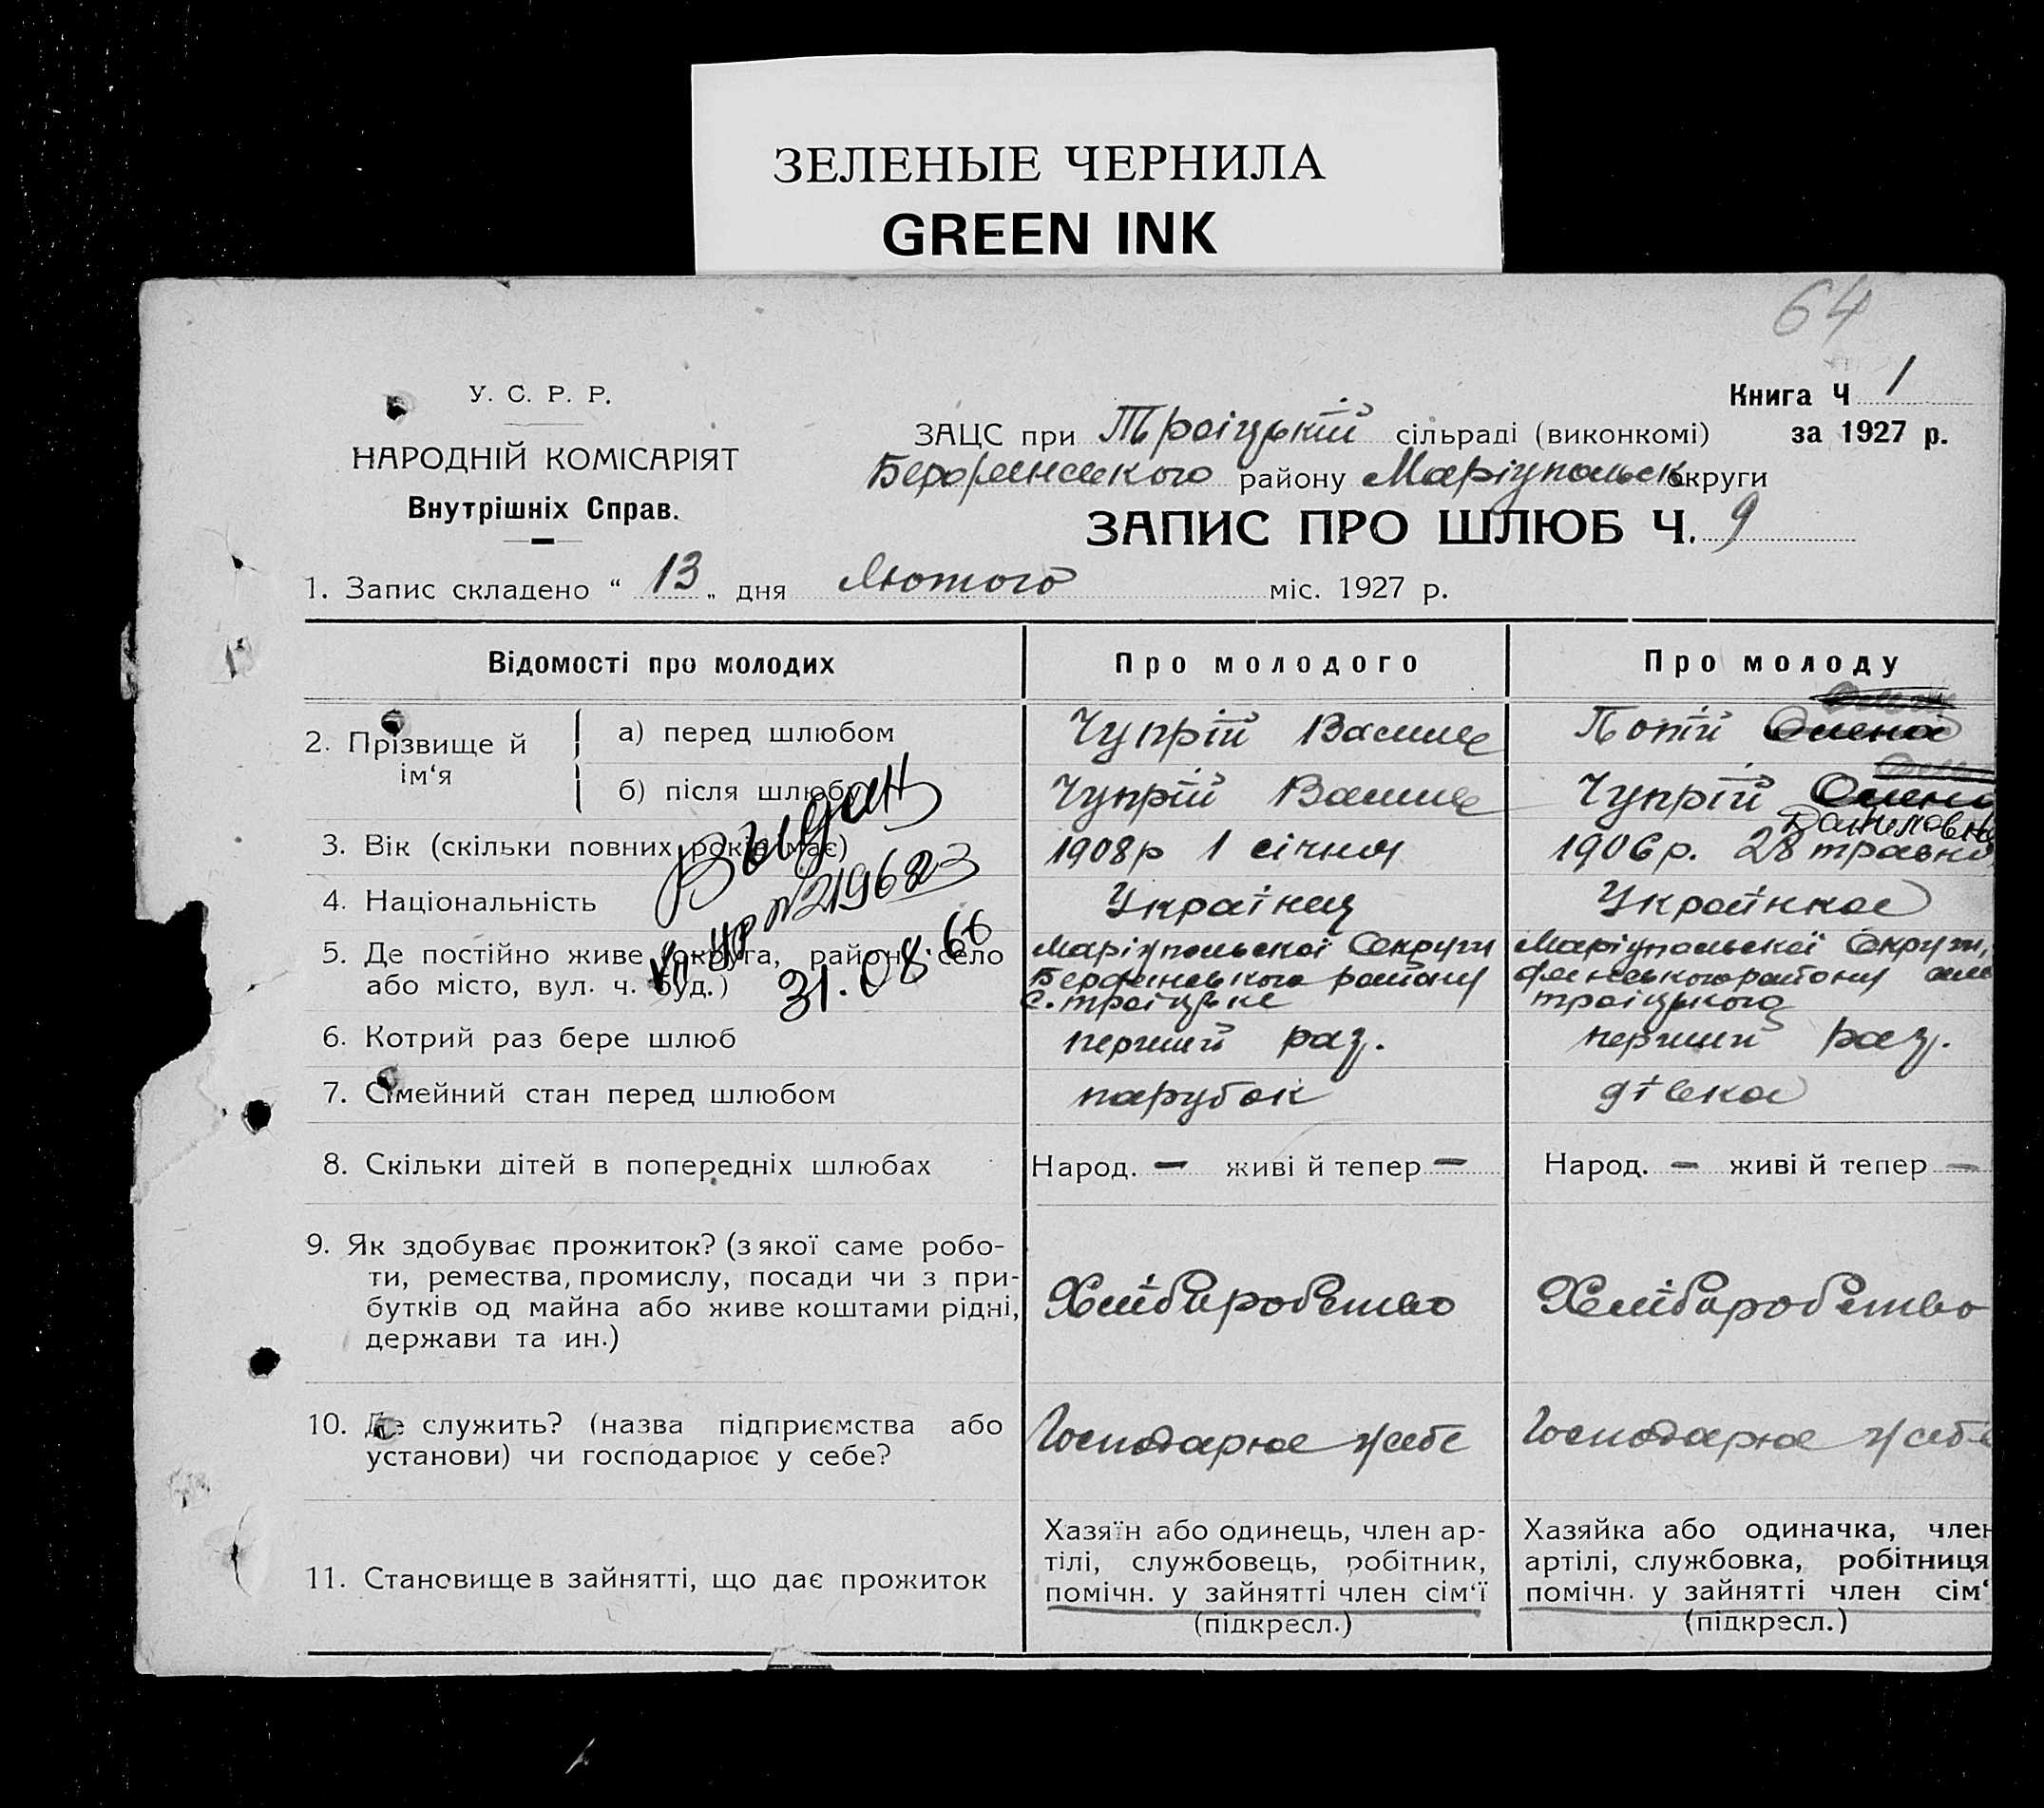 ЗЕЛЕНЫЕ ЧЕРНИЛА
GREEN INK
64
У. С. Р. Р.
НАРОДНІЙ КОМІСАРІЯТ
Внутрішніх Справ.
Книга Ч 1
ЗАЦС при Троіцькій сільраді (виконкомі) за 1927 р.
району Маріупольск округи
ЗАПИС ПРО ШЛЮБ Ч. 9
1. Запис складено “ 13 „ дня Лютого міс. 1927 р.
Відомості про молодих Про молодого Про молоду
2. Прізвище й ім‘я
а) перед шлюбом Чупрій Василь Потій Олена
б) після шлюбу Чупрій Василь Чупрій Олена
3. Вік (скільки повних років має) 1908р 1 січня 1906р. 28 травня
4. Національність Українец Українка
5. Де постійно живе (округа, район, село
або місто, вул. ч. буд.)
Маріупольскої Округи
району
с. троіцьке
Маріупольскої Округи,
району
троіцького
Выдан
№ 219683
31.08.66
6. Котрий раз бере шлюб перший раз. перший раз.
7. Сімейний стан перед шлюбом парубок дівка
8. Скільки дітей в попередніх шлюбах Народ. — живі й тепер — Народ. — живі й тепер —
9. Як здобуває прожиток? (з якої саме робо-
ти, ремества, промислу, посади чи з при-
бутків од майна або живе коштами рідні,
держави та ин.)
Хлібиробство Хлібиробство
10. Де служить? (назва підприємства або
установи) чи господарює у себе?
Господарює усебе Господарює усебе
11. Становище в зайнятті, що дає прожиток
Хазяїн або одинець, член ар-
тілі, службовець, робітник,
помічн. у зайнятті член сім‘ї
(підкресл.)
Хазяйка або одиначка, член
артілі, службовка, робітниця
помічн. у зайнятті член сім‘
(підкресл.)